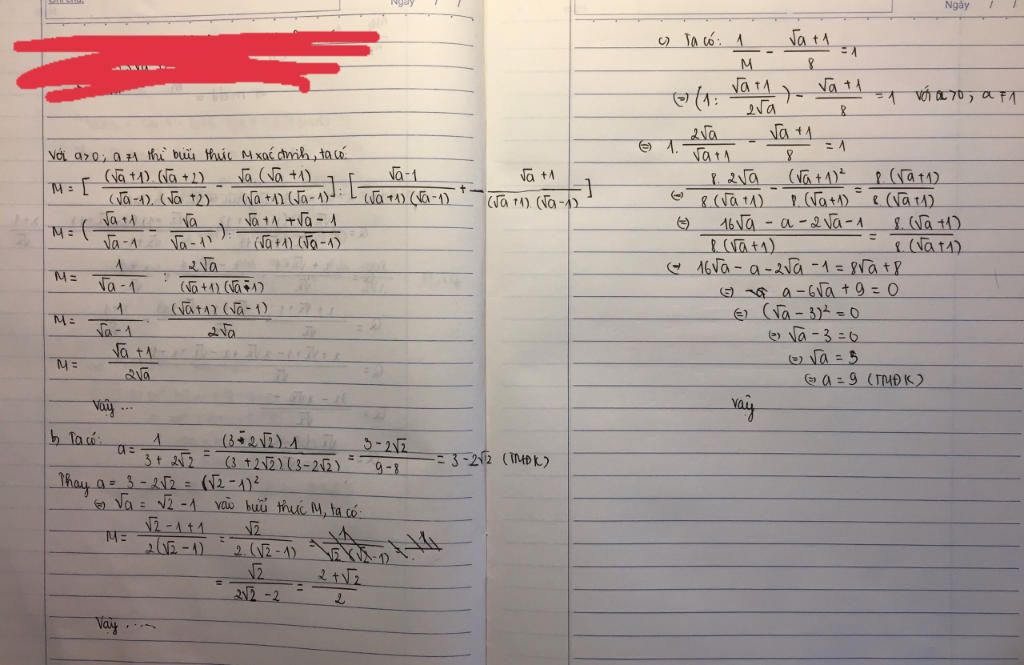 Ngày / /
Với a>0; a≠1 thì biểu thức M xác định, ta có
M = [ (√a+1).(√a+2) / (√a-1).(√a+2) - √a.(√a+1) / (√a+1)(√a-1) ] : [ √a-1 / (√a+1)(√a-1) + √a+1 / (√a+1)(√a-1) ]
M = ( √a+1 / √a-1 - √a / √a-1 ) : √a+1+√a-1 / (√a+1)(√a-1)
M = 1 / √a-1 : 2√a / (√a+1)(√a-1)
M = 1 / √a-1 . (√a+1)(√a-1) / 2√a
M = √a+1 / 2√a
Vậy ...
b, Ta có: a = 1 / 3+2√2 = (3-2√2).1 / (3+2√2)(3-2√2) = 3-2√2 / 9-8 = 3-2√2 (TMĐK)
Thay a = 3-2√2 = (√2-1)²
⇔ √a = √2-1 vào biểu thức M, ta có:
M = √2-1+1 / 2(√2-1) = √2 / 2.(√2-1)
= √2 / 2√2-2 = 2+√2 / 2
Vậy ....
Ngày / /
c) Ta có: 1 / M - √a+1 / 8 = 1
⇔ (1 : √a+1 / 2√a) - √a+1 / 8 = 1 với a>0; a≠1
⇔ 1. 2√a / √a+1 - √a+1 / 8 = 1
⇔ 8.2√a / 8(√a+1) - (√a+1)² / 8.(√a+1) = 8(√a+1) / 8(√a+1)
⇔ 16√a - a - 2√a - 1 / 8.(√a+1) = 8.(√a+1) / 8(√a+1)
⇔ 16√a - a - 2√a - 1 = 8√a + 8
⇔ a - 6√a + 9 = 0
⇔ (√a - 3)² = 0
⇔ √a - 3 = 0
⇔ √a = 3
⇔ a = 9 (TMĐK)
Vậy